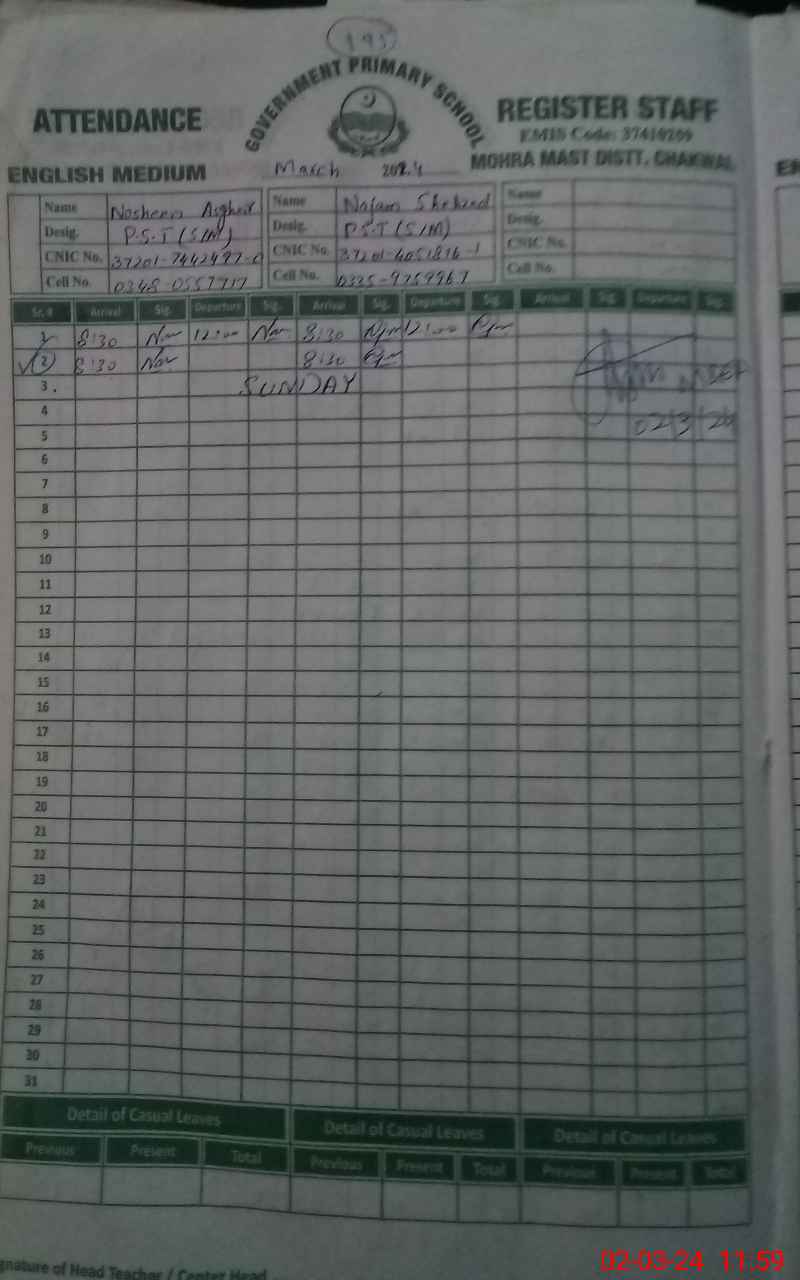 195
GOVERNMENT PRIMARY SCHOOL
ATTENDANCE REGISTER STAFF
EMIS Code: 37410209
ENGLISH MEDIUM March 2024 MOHRA MAST DISTT. CHAKWAL
Name Nosheen Asghar Name Najam Shehzad Name
Desig. P.S.T (S/M) Desig. P.S.T (S/M) Desig.
CNIC No. 37201-7442497-0 CNIC No. 37201-4051876-1 CNIC No.
Cell No. 0348-0557717 Cell No. 0335-9759967 Cell No.
Sr.# Arrival Sig. Departure Sig. Arrival Sig. Departure Sig. Arrival Sig. Departure Sig.
1 8:30 12:00 8:30 12:00
2 8:30 8:30
3. SUNDAY
4
02/3/24
5
6
7
8
9
10
11
12
13
14
15
16
17
18
19
20
21
22
23
24
25
26
27
28
29
30
31
Detail of Casual Leaves Detail of Casual Leaves Detail of Casual Leaves
Previous Present Total Previous Present Total Previous Present Total
gnature of Head Teacher / Center Head
02-03-24 11:59